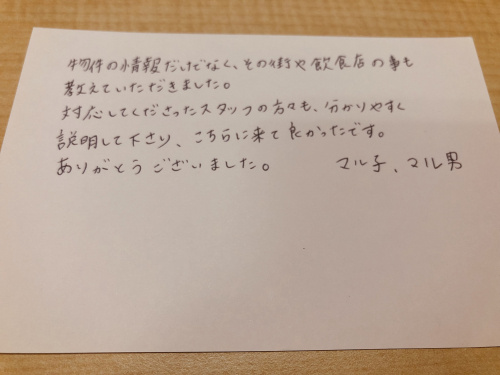 物件の情報だけでなく、その街や飲食店の事も
教えていただきました。
対応してくださったスタッフの方々も、分かりやすく
説明して下さり、こちらに来て良かったです。
ありがとうございました。 マル子、マル男